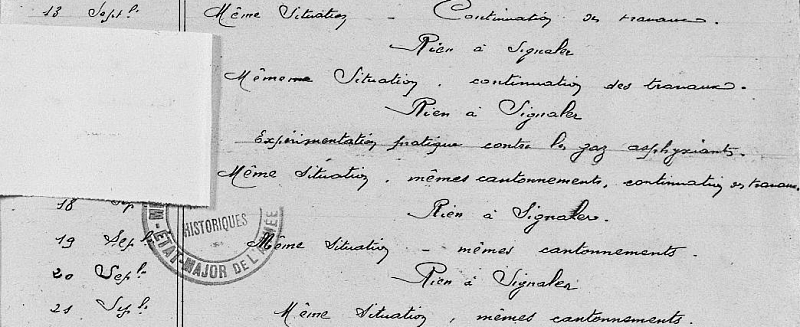 13 Sept.
Même Situation - Continuation des travaux.
Rien à Signaler
Mêmeme Situation, continuation des travaux.
Rien à Signaler
Expérimentation pratique contre les gaz asphyxiants.
Même Situation, mêmes cantonnements, continuation des travaux.
18 Sep
Rien à Signaler.
HISTORIQUES
ÉTAT-MAJOR DE L'ARMÉE
19 Sept.
Même Situation - mêmes cantonnements.
20 Sept.
Rien à Signaler
21 Sept.
Même Situation, mêmes cantonnements.